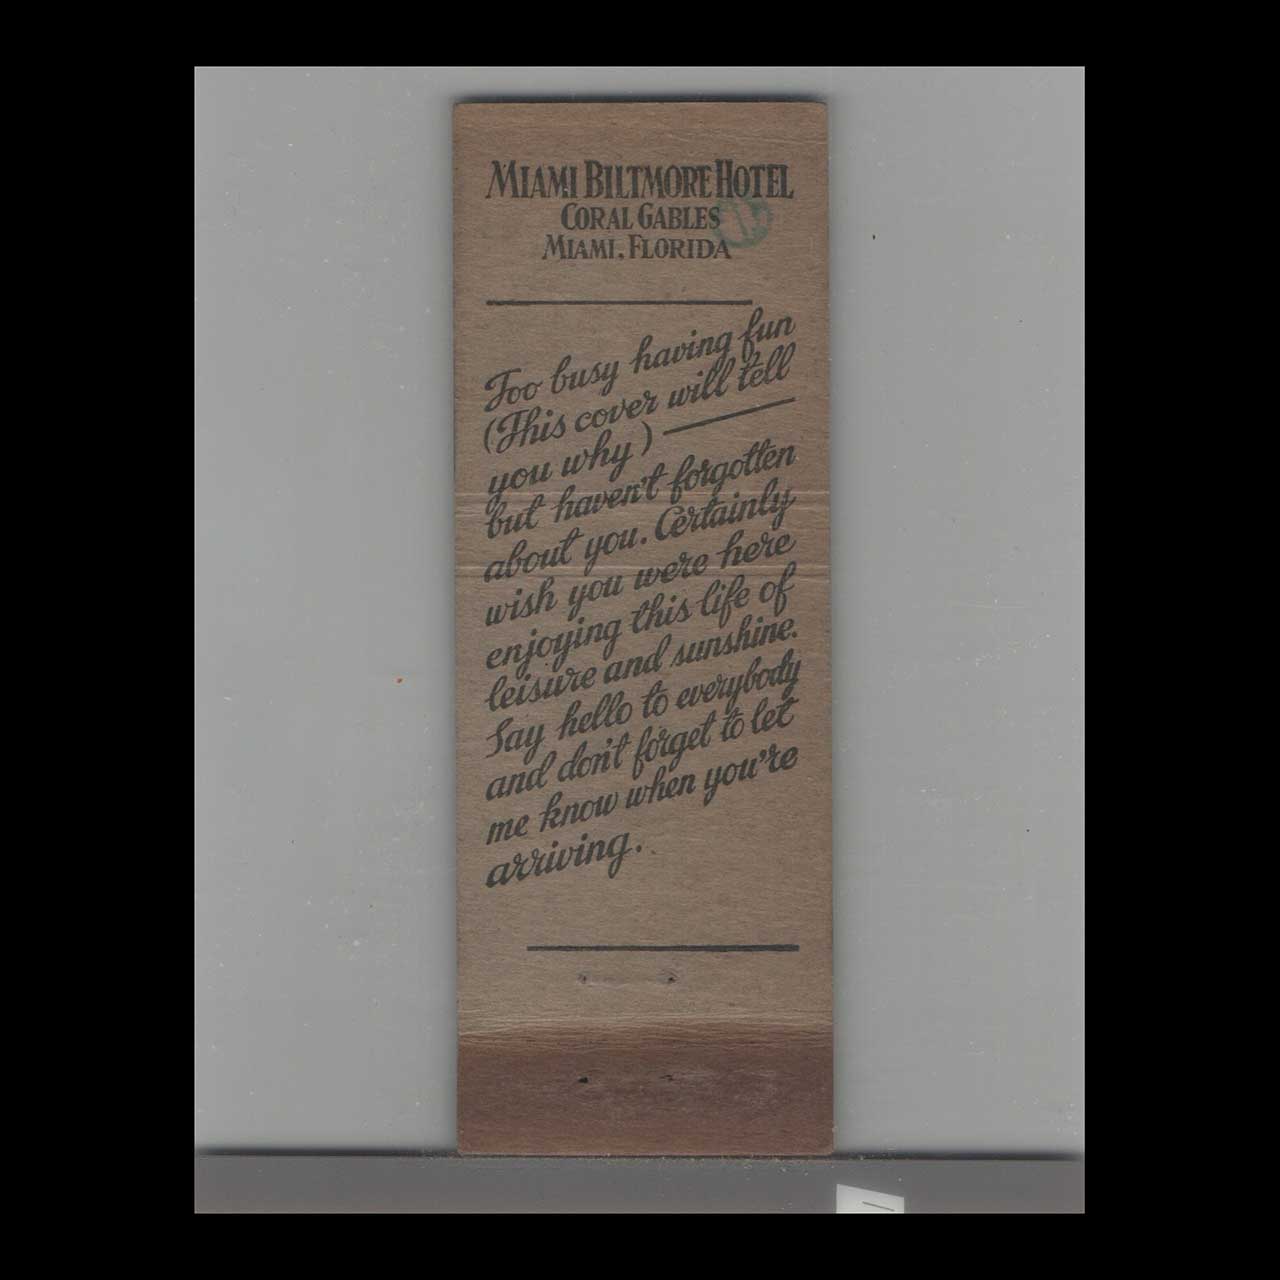 MIAMI BILTMORE HOTEL
CORAL GABLES
MIAMI, FLORIDA
Too busy having fun
(This cover will tell
you why)
but haven't forgotten
about you. Certainly
wish you were here
enjoying this life of
leisure and sunshine.
Say hello to everybody
and don't forget to let
me know when you're
arriving.